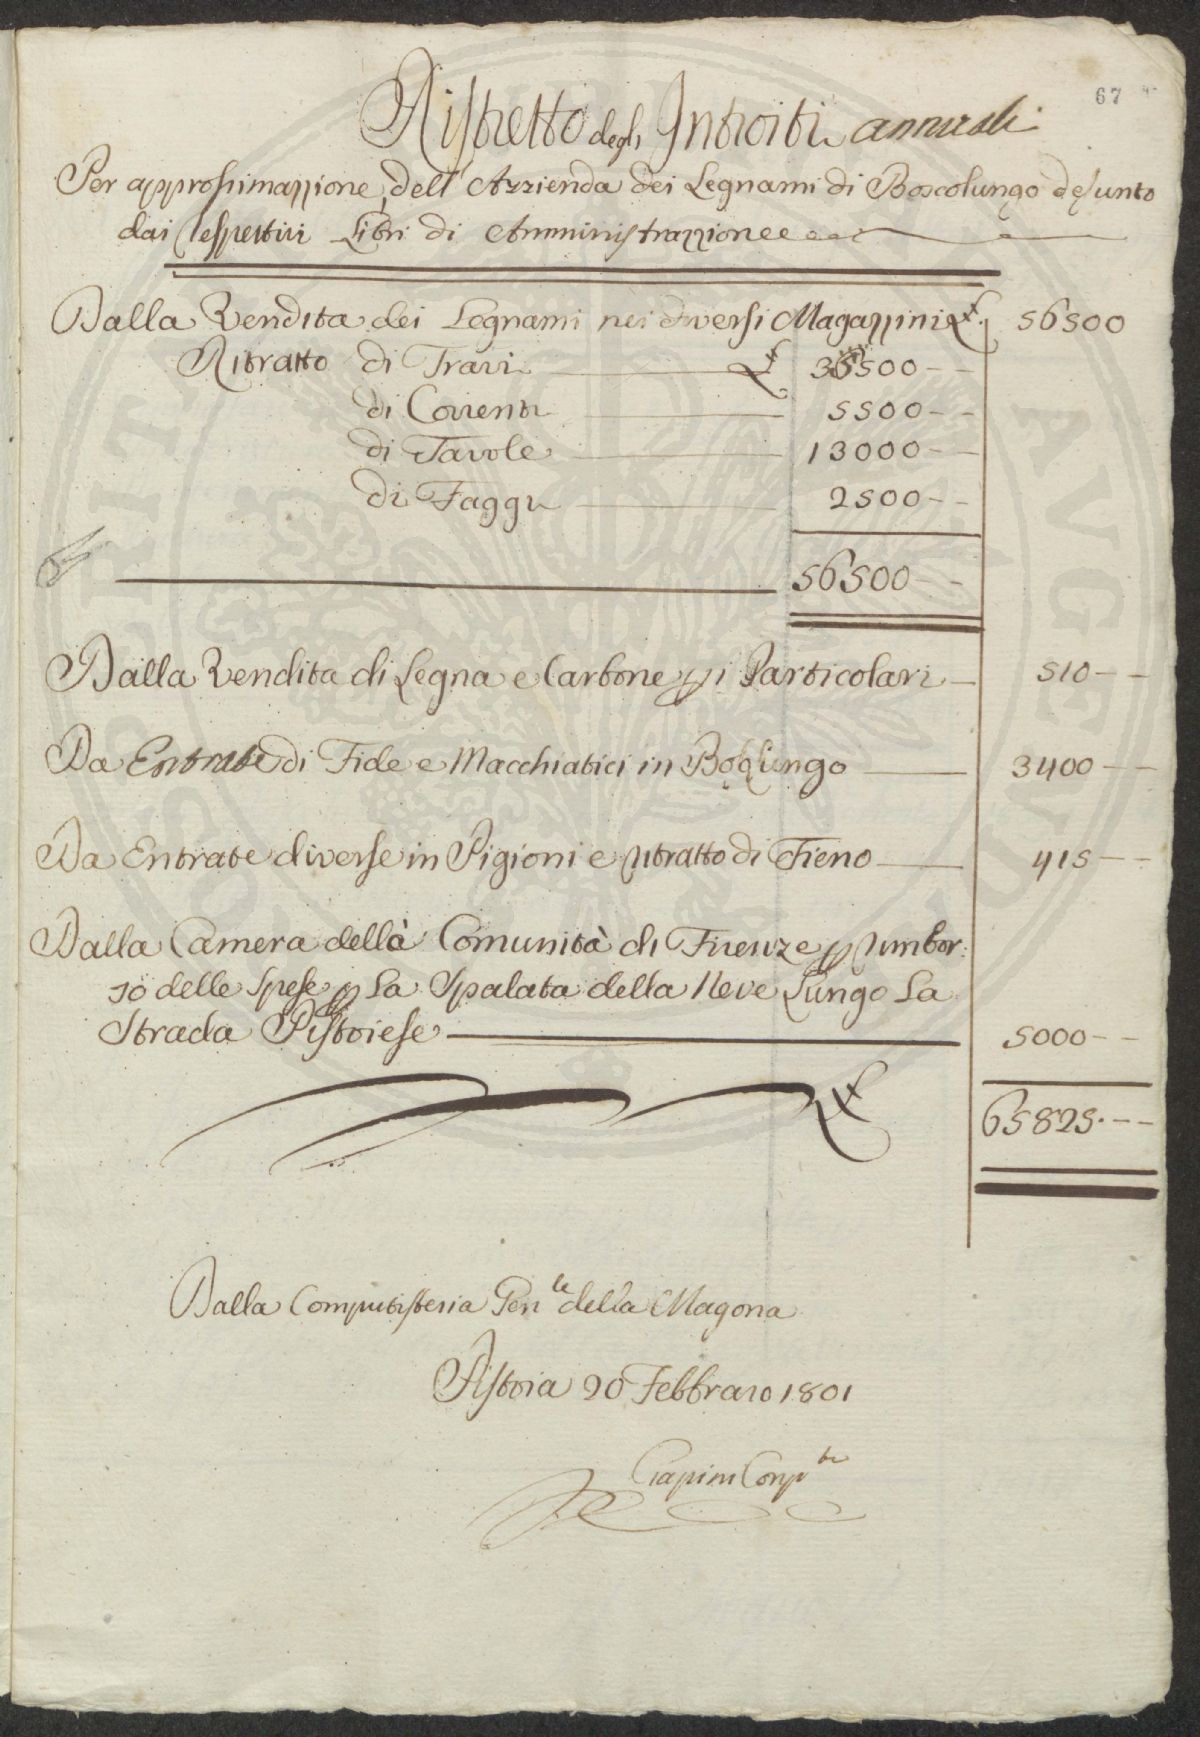 67
Ristretto degli Introiti annuali
Per approssimazzione, dell' Azzienda dei Legnami di Boscolungo desunto
dai respettivi Libri di Amministrazzione
Dalla Vendita dei Legnami nei diversi Magazzini £ 56500
Ritratto di Travi £ 35500
di Correnti 5500
di Tavole 13000
di Faggi 2500
56500
Dalla Vendita di Legna e Carbone p i Particolari 510
Da Entrate di Fide e Macchiatici in Boscolungo 3400
Da Entrate diverse in Pigioni e ritratto di Fieno 415
Dalla Camera della Comunità di Firenze p rimbor:
so delle Spese p La Spalata della Neve Lungo La
Strada Pistoiese 5000
£ 65825.
Dalla Computisteria Gen.le della Magona
Pistoia 20 Febbraio 1801